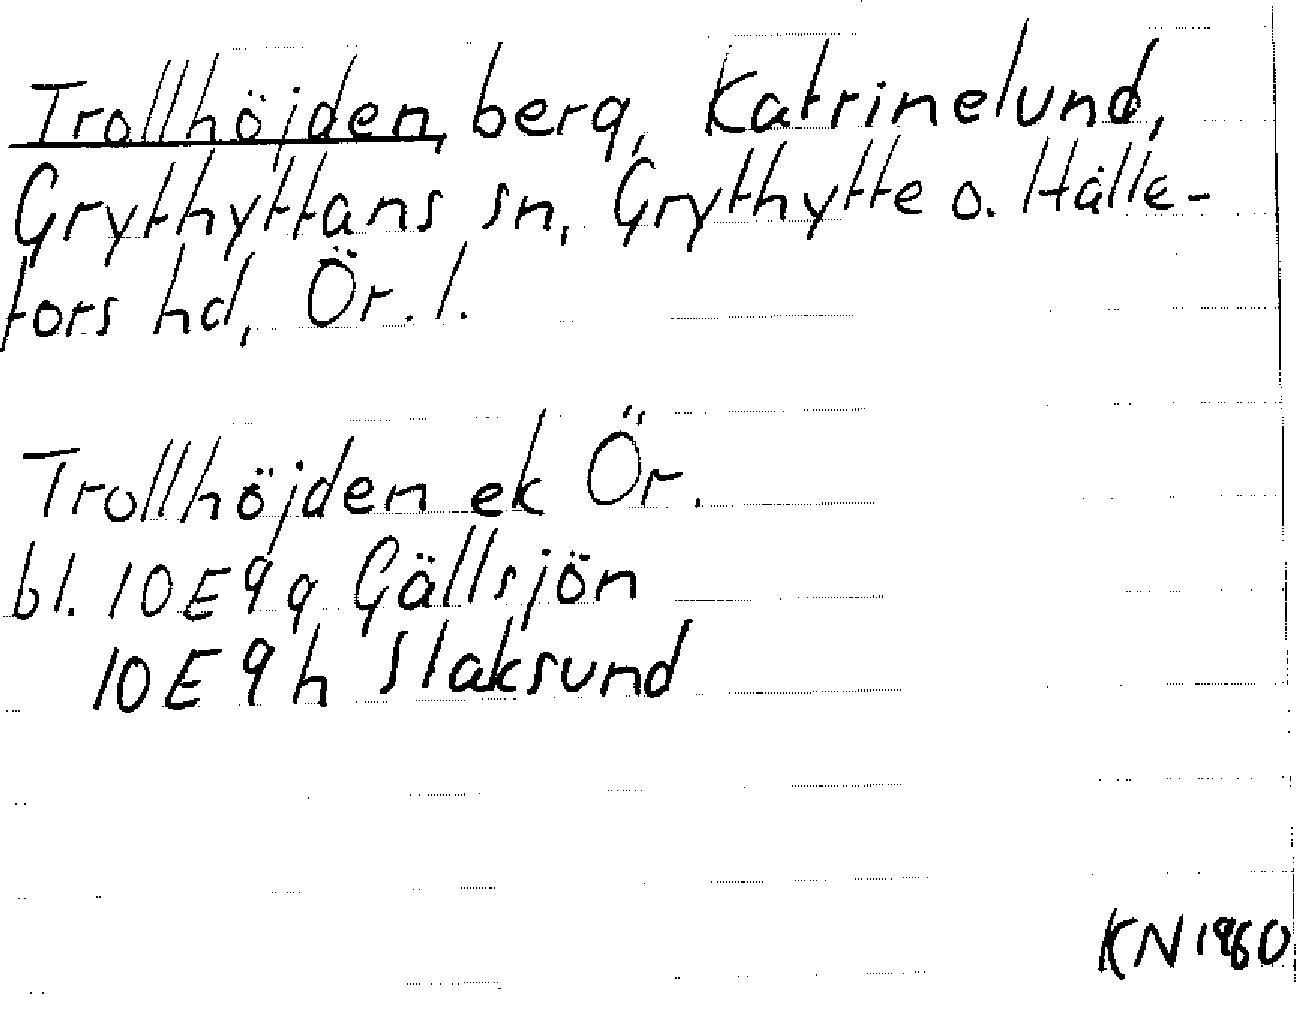 Trollhöjden, berg, Katrinelund,
Grythyttans sn, Grythytte o. Hälle-
fors hd, Ör. l.
Trollhöjden ek Ör.
bl. 10E9g Gällsjön
10E9h Slaksund
KN 1980